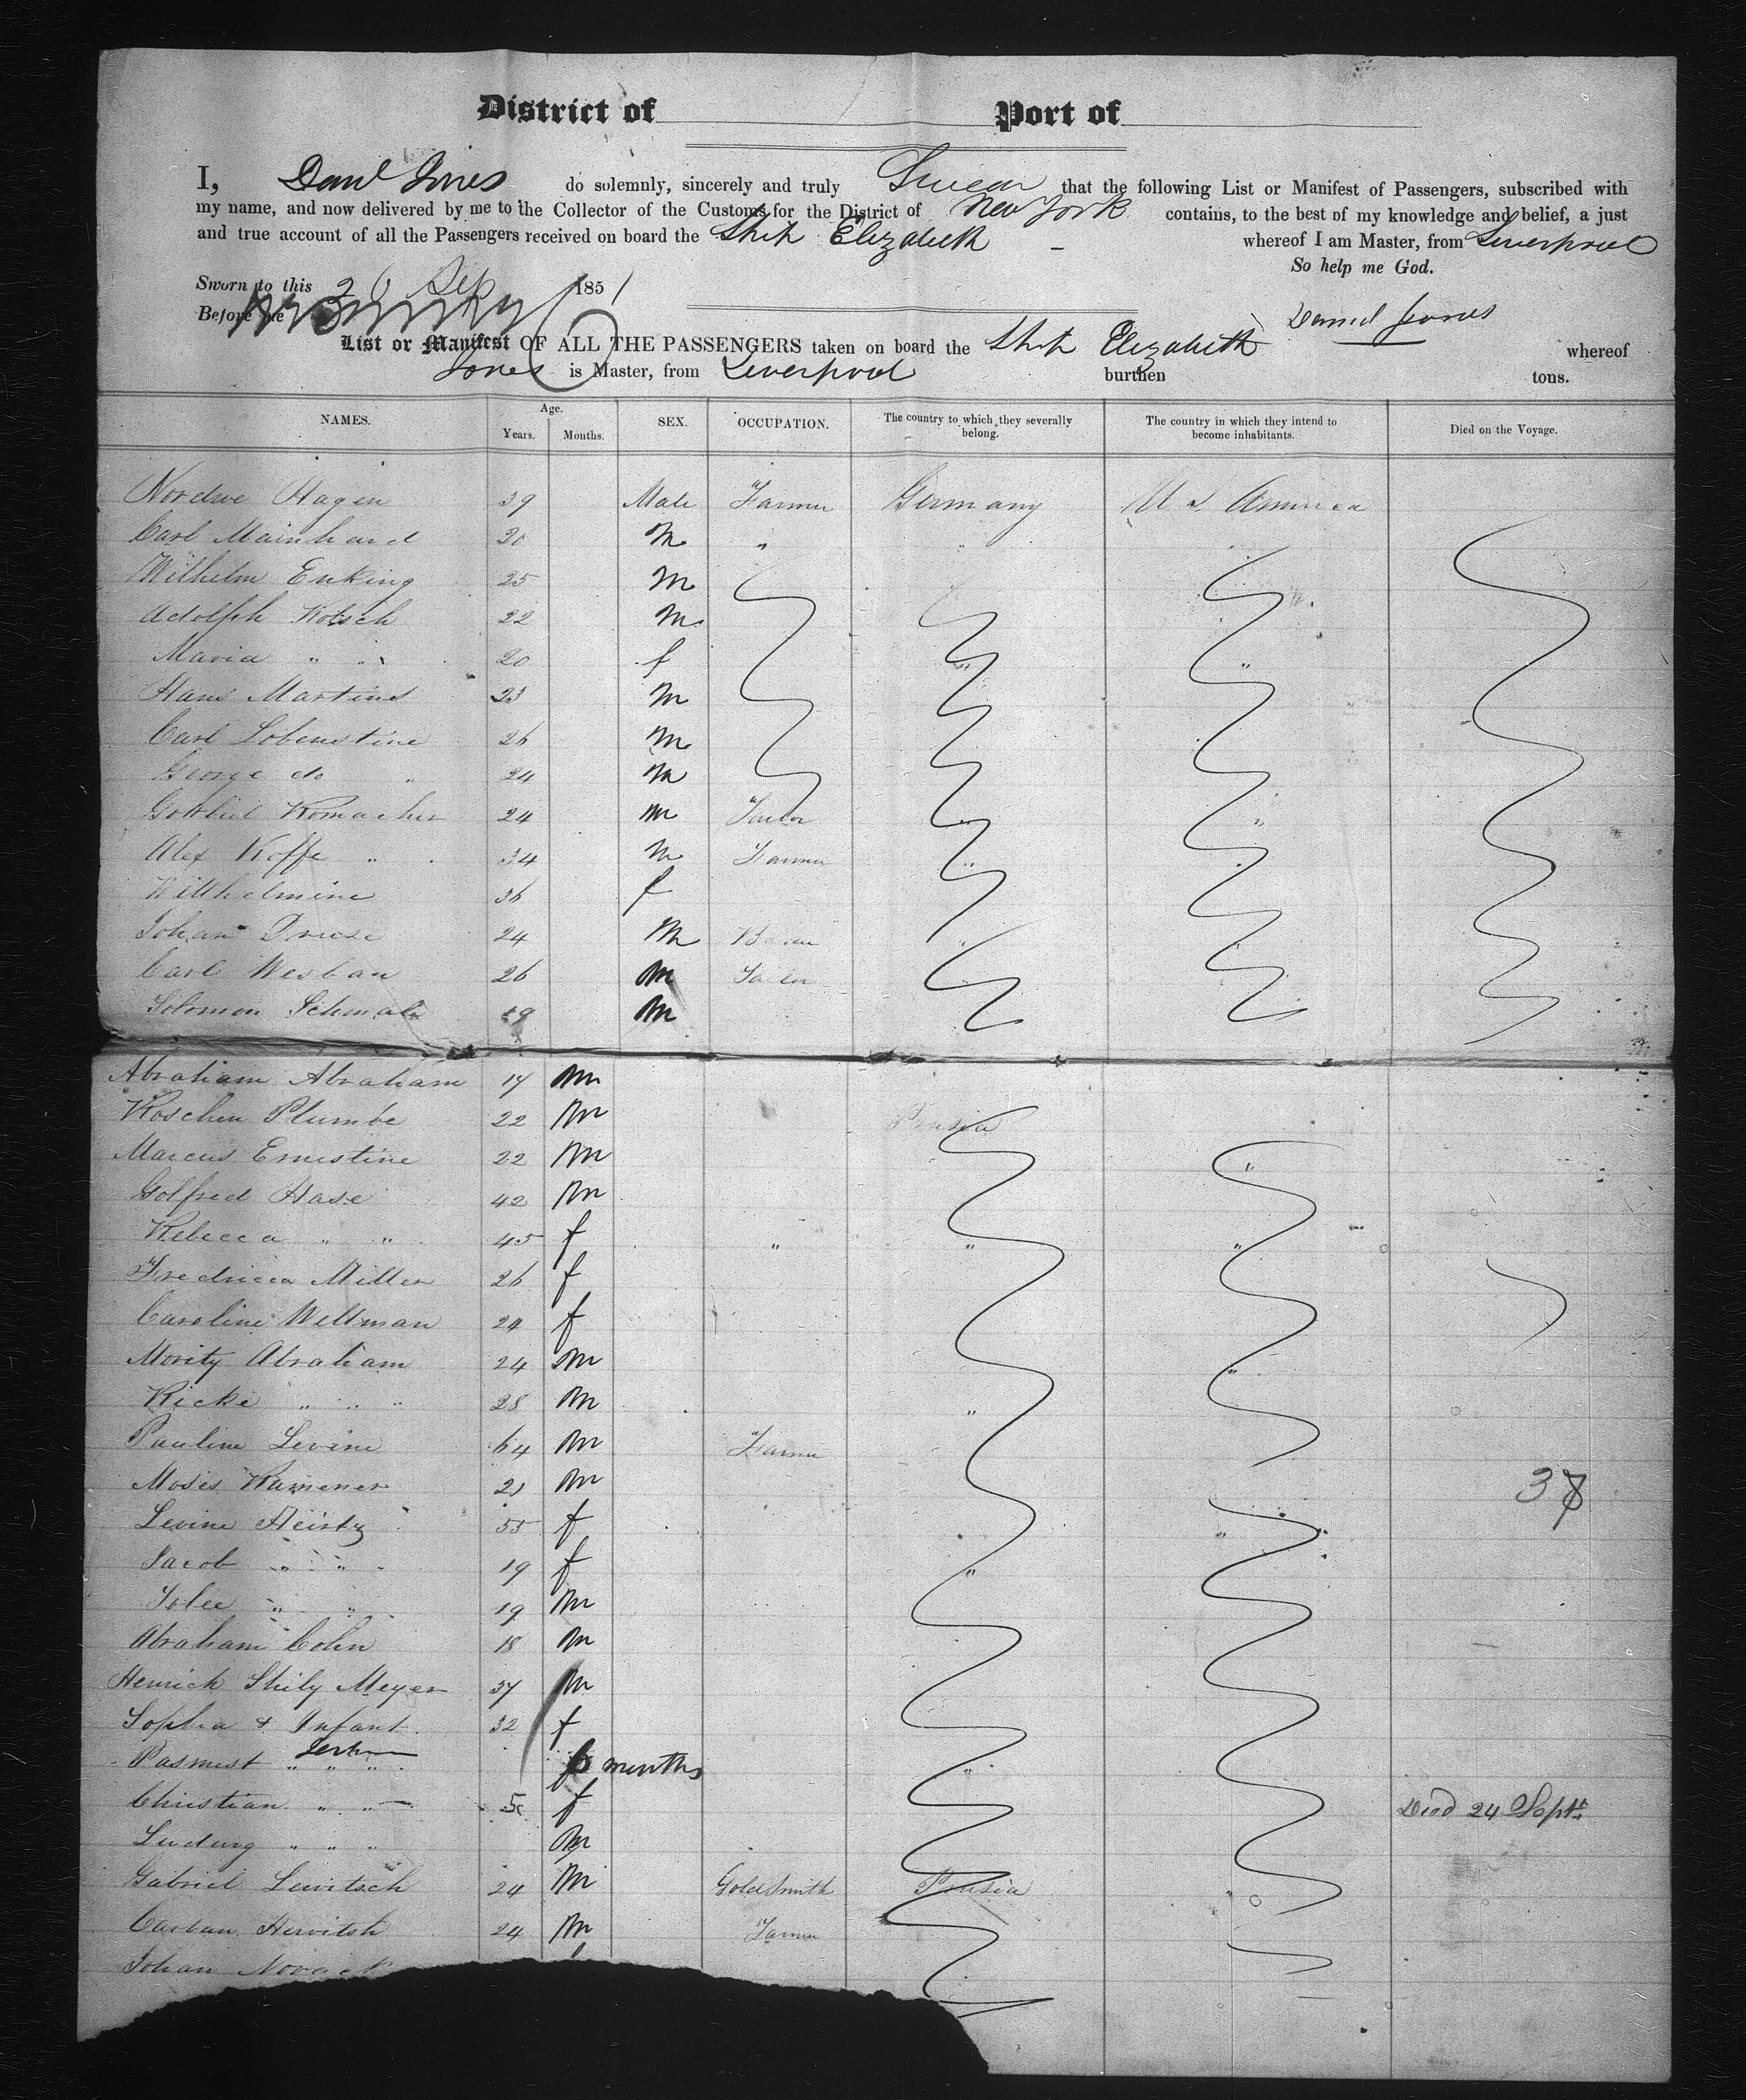 District of Port of
I, Danl Jones do solemnly, sincerely and truly Swear that the following List or Manifest of Passengers, subscribed with
my name, and now delivered by me to the Collector of the Customs for the District of New York contains, to the best of my knowledge and belief, a just
and true account of all the Passengers received on board the Ship Elizabeth whereof I am Master, from Liverpool
So help me God.
Sworn to this 26 Sep 1851
Before me
Daniel Jones
List or Manifest OF ALL THE PASSENGERS taken on board the Ship Elizabeth whereof
Jones is Master, from Liverpool burthen tons.
NAMES. Age. Years. Months. SEX. OCCUPATION. The country to which they severally belong. The country in which they intend to become inhabitants. Died on the Voyage.
Hagen 39 Male Farmer Germany U S America
Carl Mainhard 20 M "
Wilhelm Enking 25 M
Adolph Kotsch 22 M
Maria " " 20 f
Hans Martins 23 M
Carl Lobenstine 26 M
George do 24 M
Gottlieb 24 M Tailor
Alex Koffe " 34 M Farmer
Willhelmine 36 f
Johan 24 M
Carl Wesban 26 M Tailor
Solomon 19 M
Abraham Abraham 17 M
Roschen Plumbe 22 M Prusia
Marcus Ernestine 22 M
Golfred Hase 42 M
Rebecca " " 45 f
Fredricca Miller 26 f
Caroline Wellman 24 f
Mority Abraham 24 M
Ricke " " " 28 M
Pauline Levine 64 M Farmer
Moses 21 M 37
Levine 55 f
Jacob " " 19 f
" " 19 M
Abraham Cohn 18 M
Henrich Meyer 37 M
Sophia & Infant 32 f
" " " 6 months
Christian " " 5 f Died 24 Sept
Ludwig " " " M
Gabriel Lewitsch 24 M Goldsmith Prusia
Hervitsh 24 M Farmer
Johan